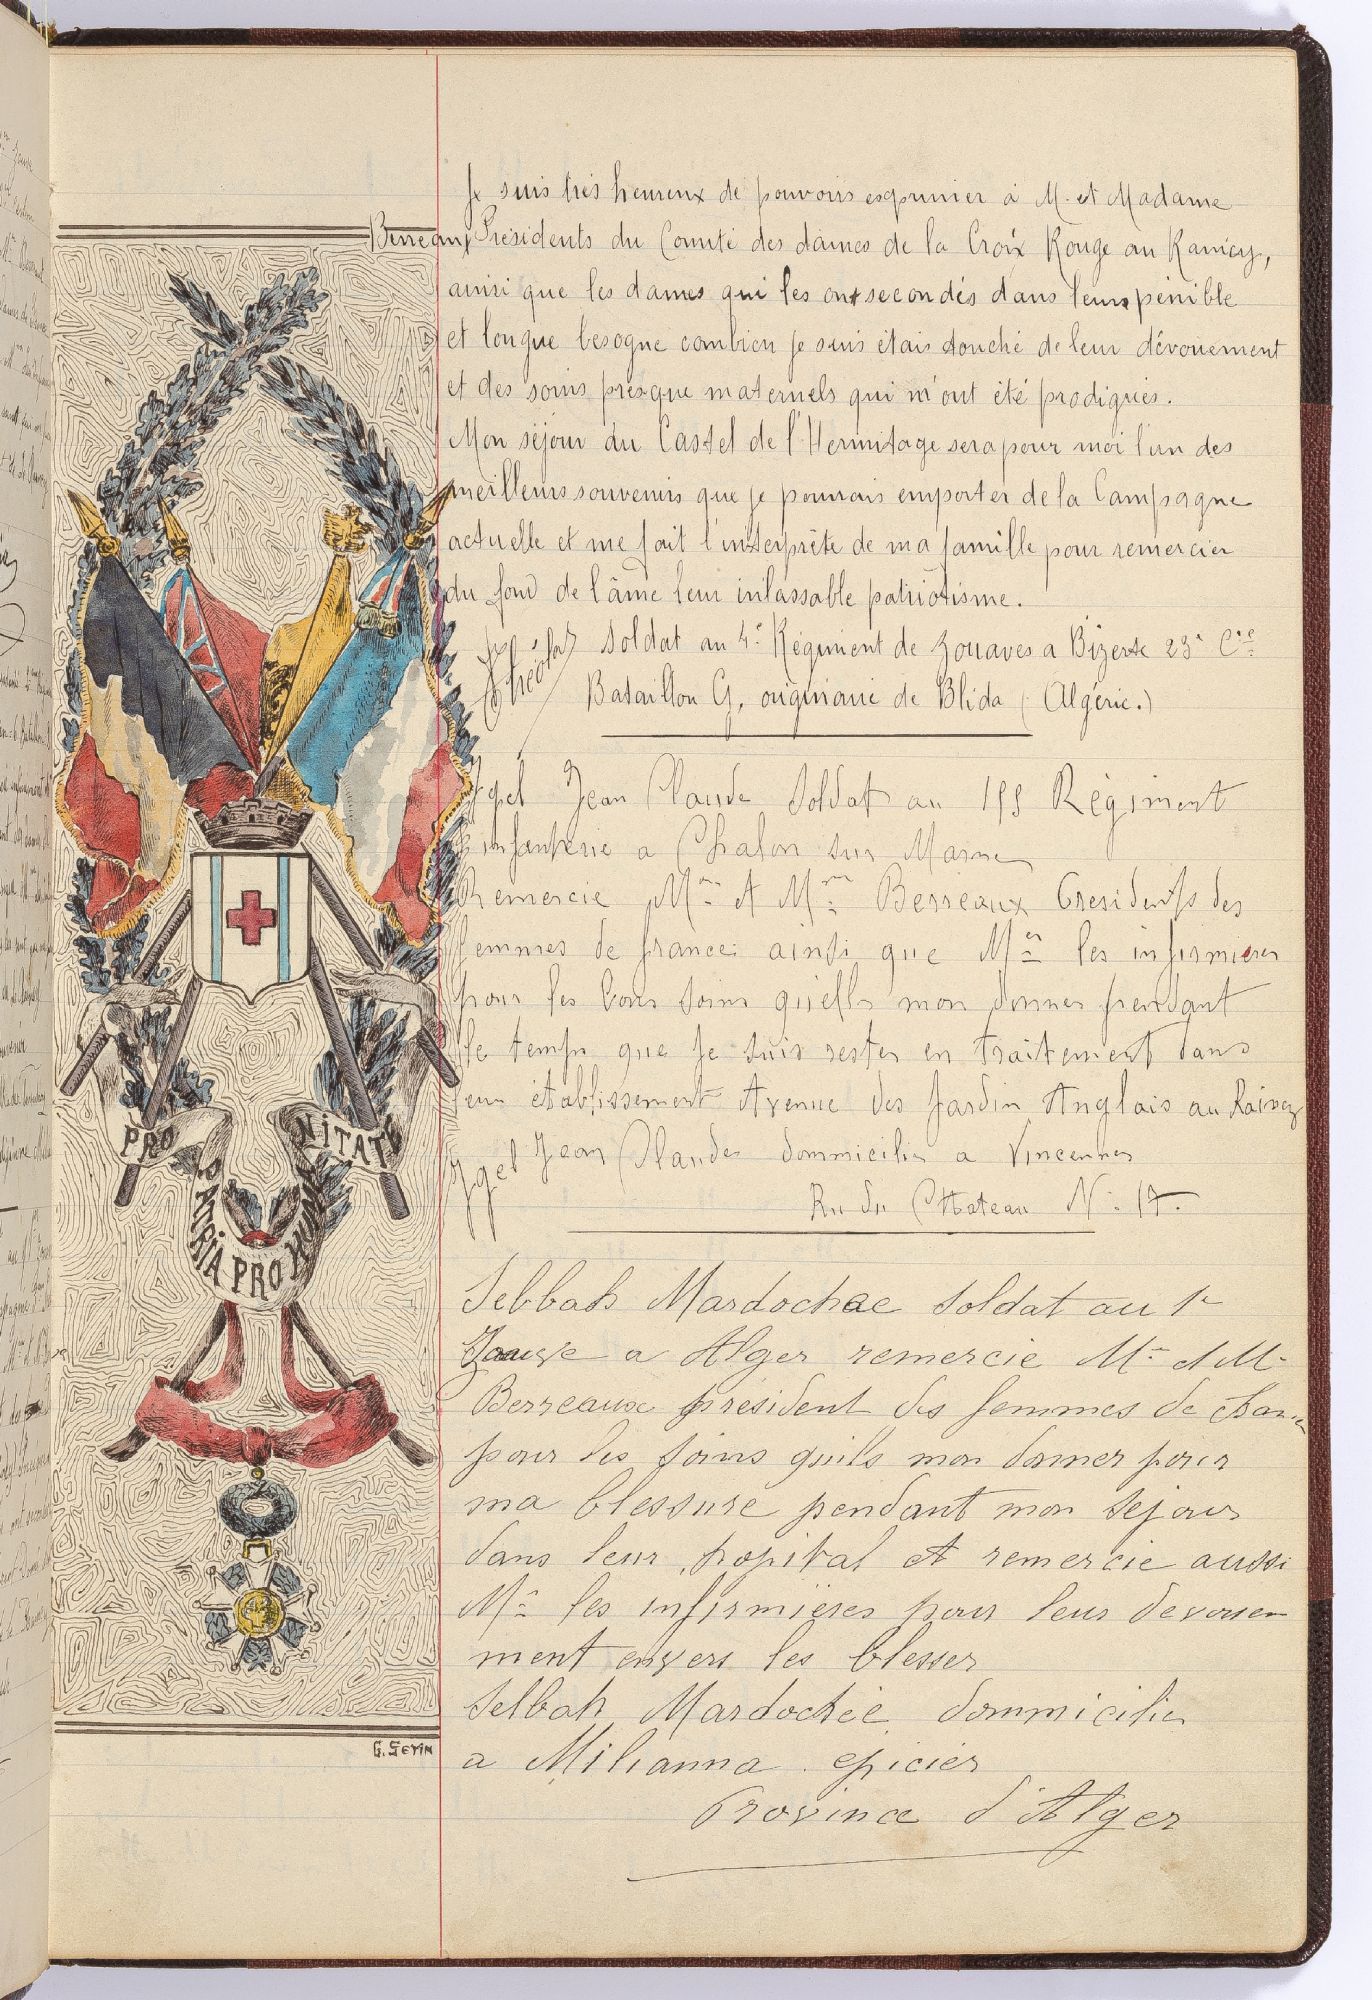 Je suis très heureux de pouvoirs esqprimier à M. et Madame
Berreaux Présidents du Comité des dames de la Croix Rouge au Raincy,
ainsi que les dames qui les ont secondés dans leurs pénible
et longue besogne combien je suis étais touché de leur dévouement
et des soins presque maternels qui m'ont été prodigués.
Mon séjour du Castel de l'Hermitage sera pour moi l'un des
meilleurs souvenirs que je pourrais emporter de la Campagne
actuelle et me fait l'interprète de ma famille pour remercier
du fond de l'âme leur inlassable patriotisme.
soldat au 4e Régiment de Zouaves a Bizerte 23e Cie
Bataillon G, originaire de Blida (Algérie.)
Igel Jean Claude Soldat au 155 Régiment
infanterie a Chalon sur Marne
Remercie Mr et Mme Berreaux Presidents des
femmes de france ainsi que Mes les infirmieres
pour les bons soins qu'elles mon donner pendant
le temps que je suis rester en traitement dans
leur établissement Avenue des Jardin Anglais au Raincy
Igel Jean Claude dommicilier a Vincennes
Ru du Chateau N: 17.
Sebbah Mardochae soldat au 1r
Zouave a Alger remercie Mr et Me
Berreaux président des femmes de
pour les soins quils mon donner pour
ma blessure pendant mon sejour
dans leur hopital et remercie aussi
Me les infirmières pour leur devouer
ment envers les blesser
Selbah Mardochée dommicilier
a Milianna epicier
Province d'Alger
PRO PATRIA PRO HUMANITATE
G. SEVIN